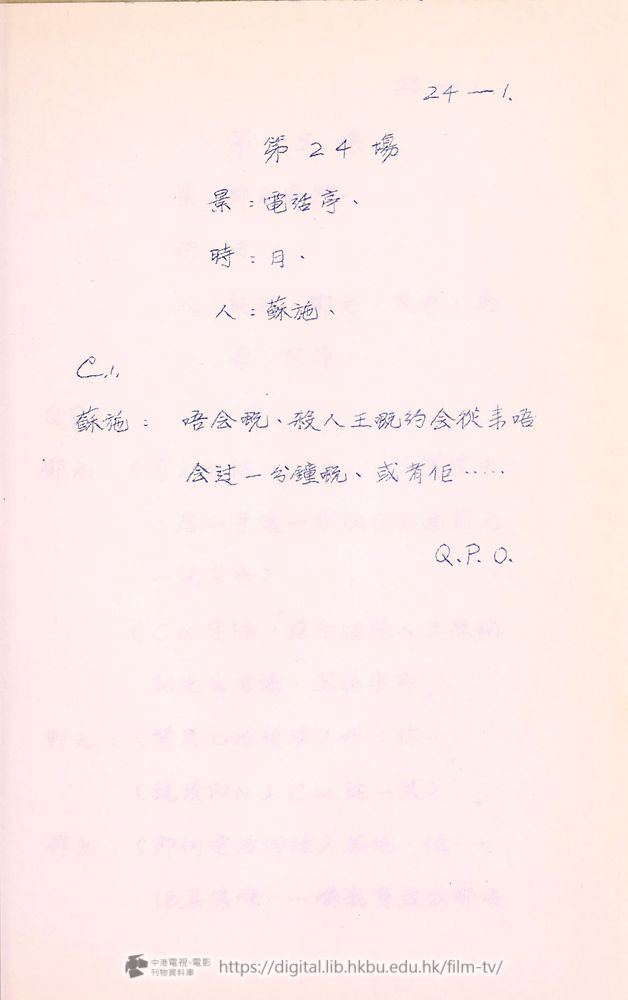 24 — 1.
第 24 場
景：電話亭、
時：日．
人：蘇施、
C.I.
蘇施： 唔会嘅、殺人王嘅約会從来唔
会过一分鐘嘅、或者佢……
Q.P.O.
中港電視·電影
刊物資料庫
https://digital.lib.hkbu.edu.hk/film-tv/